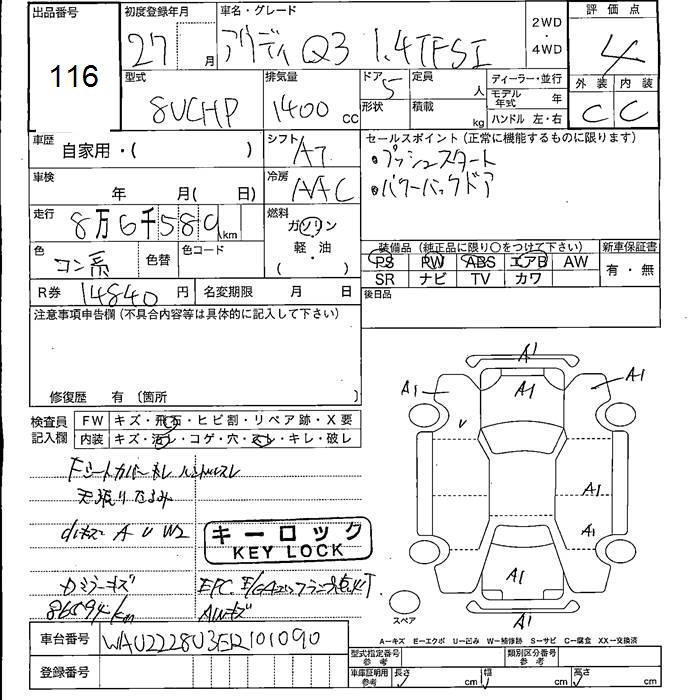 出品番号
116
初度登録年月
27 月
車名・グレード
アウディ Q3 1.4TFSI
2WD
・
4WD
評価点
4
外装 内装
C C
型式
8UCHP
排気量
1400 cc
ドア 5
形状
定員 人
積載 kg
ディーラー・並行
モデル年式 年
ハンドル 左・右
車歴
自家用・( )
シフト
AT
セールスポイント(正常に機能するものに限ります)
・プッシュスタート
・パワーバックドア
車検
年 月( 日)
冷房
AAC
走行
8万6千580km
燃料
ガソリン
軽・油
( )
色
コン系
色替
色コード
装備品(純正品に限り○をつけて下さい)
PS PW ABS エアB AW
SR ナビ TV カワ
新車保証書
有・無
R券 14840円
名変期限 月 日
後日品
注意事項申告欄(不具合内容等は具体的に記入して下さい)
修復歴 有〔箇所 〕
検査員
記入欄
FW キズ・飛石・ヒビ割・リペア跡・X要
内装 キズ・汚レ・コゲ・穴・スレ・キレ・破レ
Fシートカバーキレ ハンドルスレ
天張りたるみ
A U W2
キーロック
KEY LOCK
ミラーキズ
86594km
EPC
AWキズ
A1
A1
A1
A1
U
A1
A1
A1
A1
スペア
A-キズ E-エクボ U-凹み W-補修跡 S-サビ C-腐食 XX-交換済
車台番号 WAUZZZ8U3ER101090
登録番号
型式指定番号
参考
類別区分番号
参考
車庫証明用
参考
長さ cm
幅 cm
高さ cm